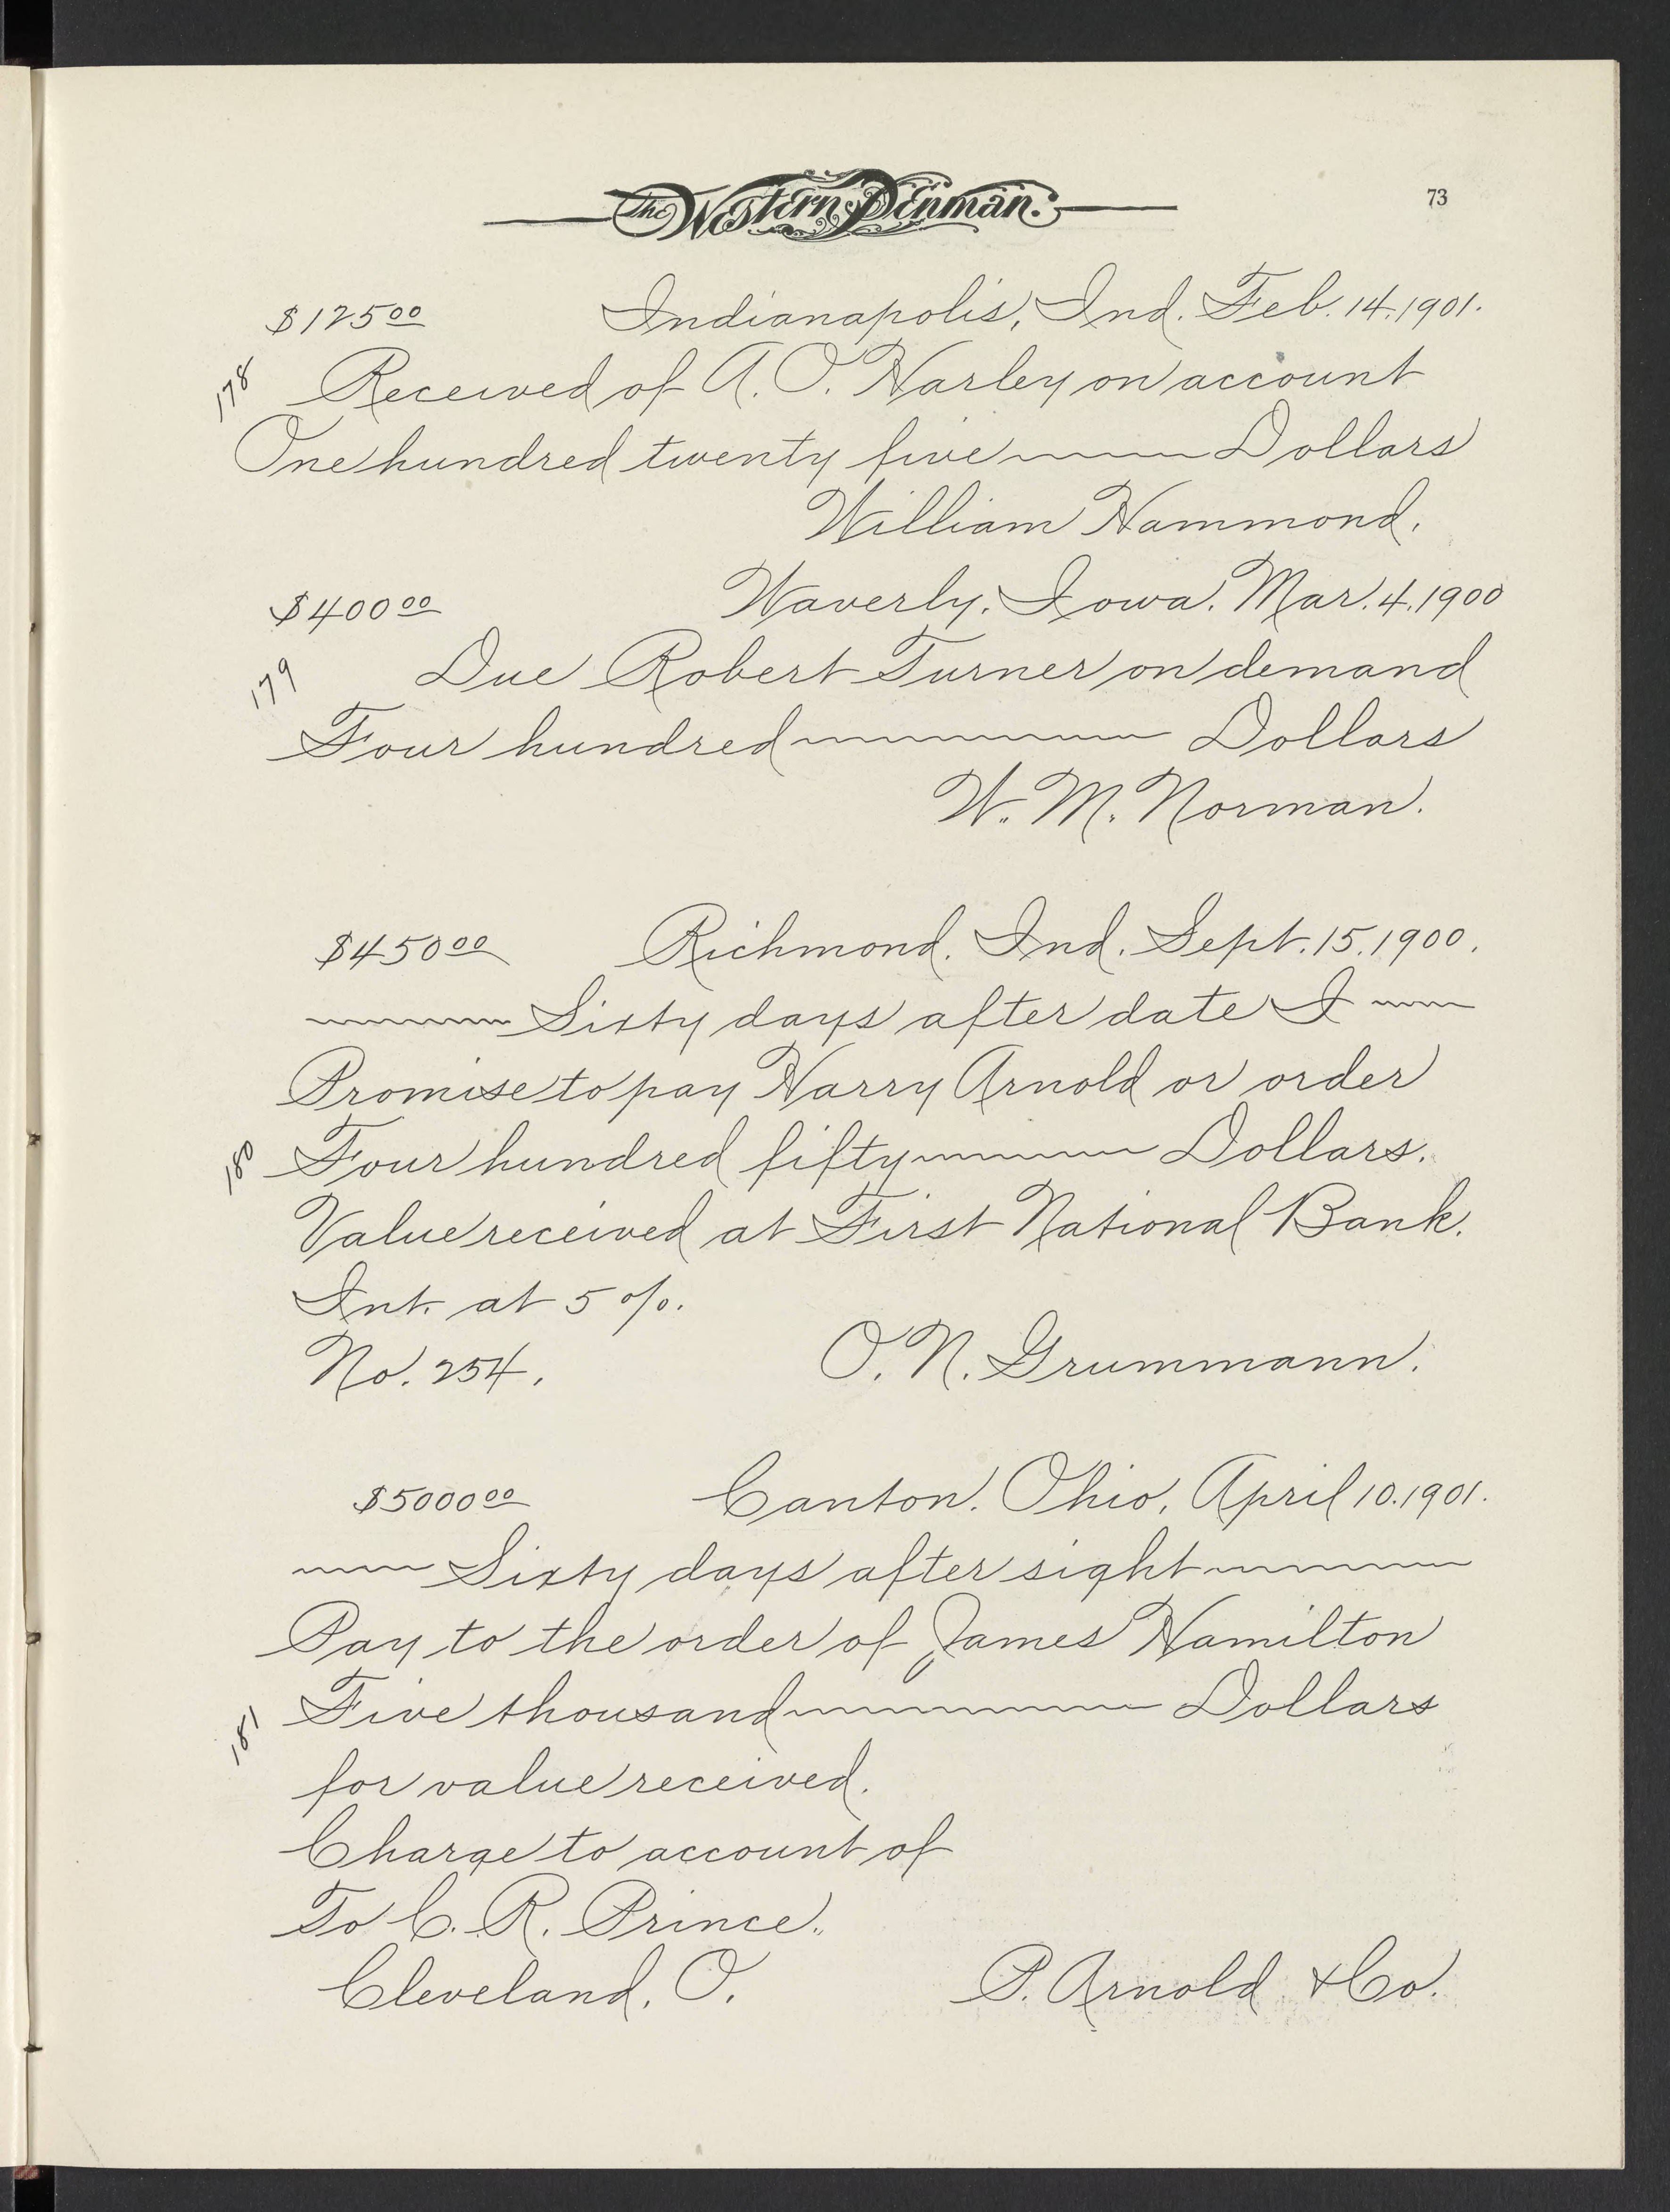 The Western Penman.
73
$125 00 Indianapolis, Ind. Feb. 14. 1901.
178 Received of A. O. Harley on account
One hundred twenty five ~~~~ Dollars
William Hammond.
$400 00 Waverly, Iowa. Mar. 4. 1900
179 Due Robert Turner on demand
Four hundred ~~~~ Dollars
W. M. Norman.
$450 00 Richmond. Ind. Sept. 15. 1900.
~~~~ Sixty days after date I ~~~~
Promise to pay Harry Arnold or order
180 Four hundred fifty ~~~~ Dollars.
Value received at First National Bank.
Int. at 5 %.
No. 254. O. N. Grummann.
$5000 00 Canton. Ohio, April 10. 1901.
~~~~ Sixty days after sight ~~~~
Pay to the order of James Hamilton
181 Five thousand ~~~~ Dollars
for value received.
Charge to account of
To C. R. Prince.
Cleveland, O. P. Arnold & Co.